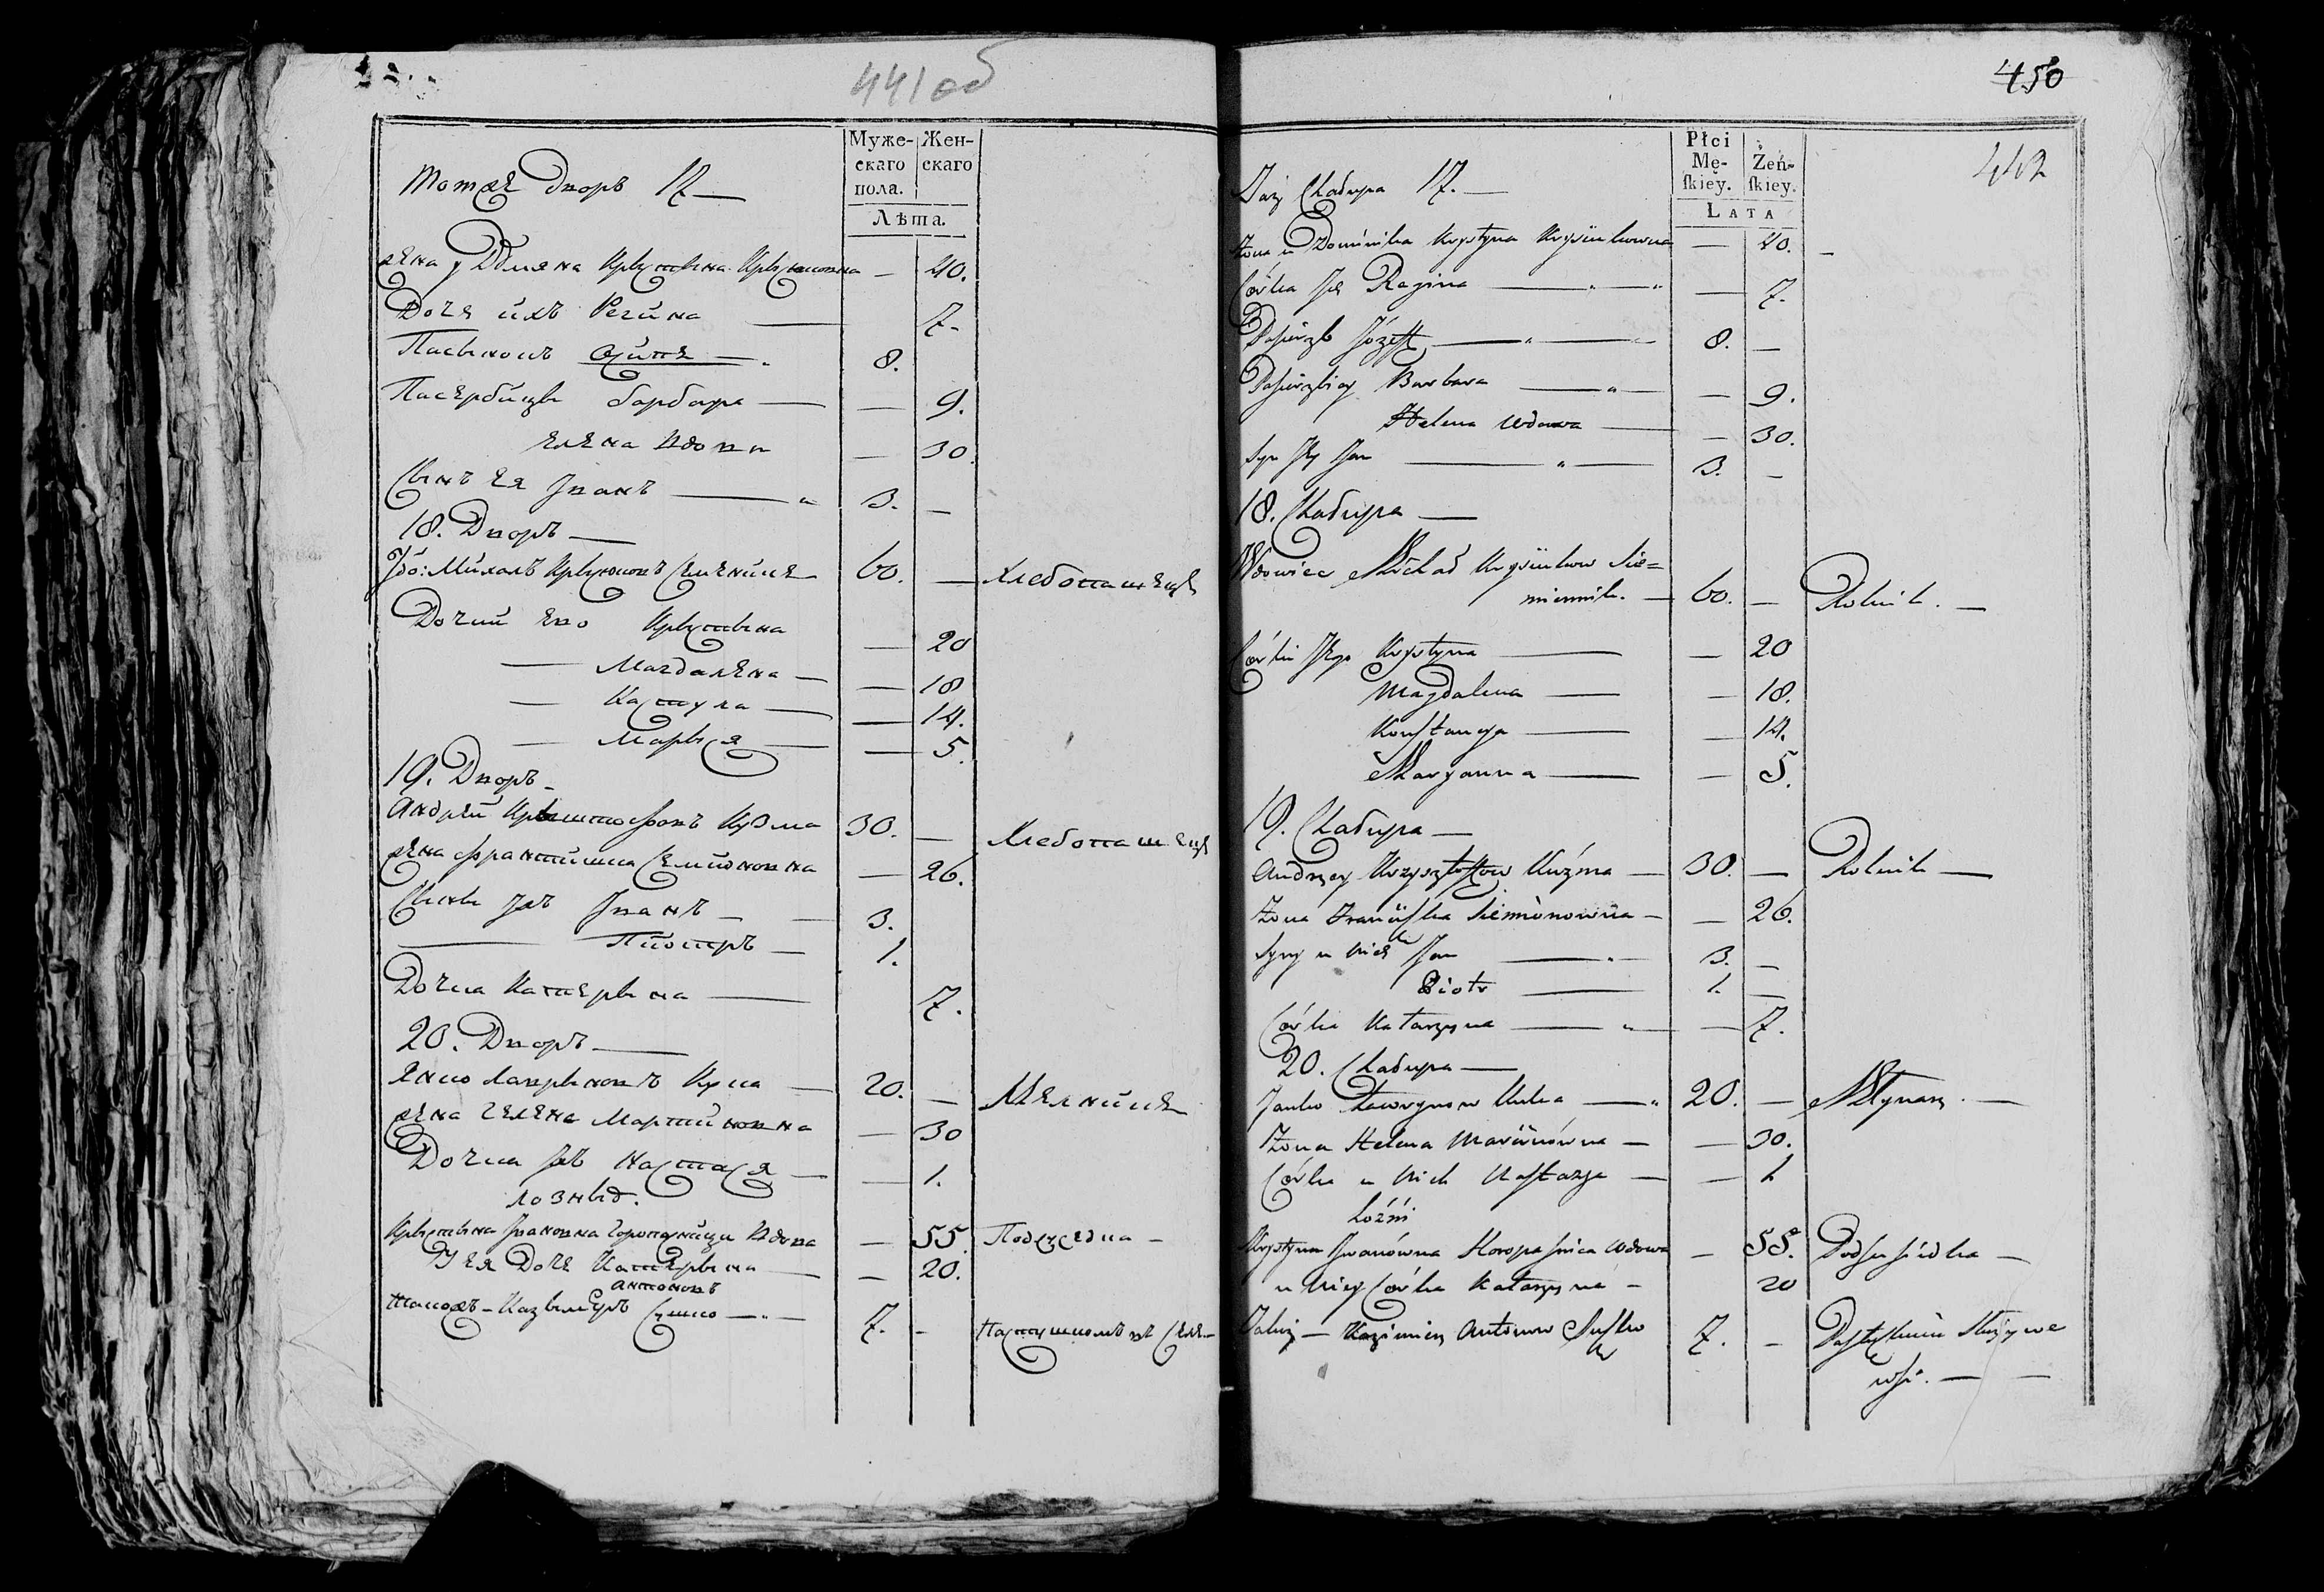 441 об
Муже-
скаго
пола.
Жен-
скаго
Лѣта.
Тотже Дворъ 17
Жена у Домена Крыстына Крысюковна — 40.
Доче ихъ Регина — 7.
Пасынокъ Осипъ — 8.
Пасербицы барбара — 9.
Елена Вдова — 30.
Сынъ Ея Иванъ — 3. —
18. Дворъ —
Вдо: Михалъ Крысюковъ Семенике 60. — Хлебопашецъ
Дочки Его Крыстына — 20
— Магдалена — 18
— Кастуля — 14.
— Марыся — 5.
19. Дворъ
Андрей Крыштофовъ Кузма 30. — Хлебопашецъ
Жена Францишка Семионовна — 26.
Сыны Ихъ Иванъ — 3.
Пиотръ — 1.
Дочка Катерына — 7.
20. Дворъ —
Янко Лаврыновъ Кука — 20. — Мелнике
Жена Гелена Мартиновна — 30
Дочка Ихъ Настася — 1.
лозныд.
Крыстына Ивановна Вдова — 55. Подсуседка —
У Ея Доче Катерына — 20.
Антоновъ
Такожъ — Казымиръ Сушко — 7. — Пастушкомъ въ Селе
450
442
Płci
Mę-
ſkiey.
Żeń-
ſkiey.
Lata
Taż Chałupa 17. —
Żona u Dominika Krystyna Krysiukowna — 40. —
Córka Ich Regina — 7.
Pasierzb Józeff — 8. —
Pasierzbicy Barbara — 9.
Helena Wdowa — 30.
Syn Jey Jan — 3. —
18. Chałupa —
Wdowiec Michał Krysiukow Sie=
miennik. — 60. — Rolnik. —
Córki Jego Krystyna — 20
Magdalena — 18.
Konstancya — 14.
Maryanna — 5.
19. Chałupa —
Andrzey Krzysztoffow Kuźma — 30. — Rolnik —
Żona Franciſzka Siemionowna — 26.
Syny u Nich Jan — 3. —
Piotr — 1. —
Córka Katarzyna — 7.
20. Chałupa —
Janko Ławrynow Kuka — 20. — Młynarz. —
Żona Helena Marcinówna — 30.
Córka u Nich Naſtazya — 1
Łóźni
Krystyna Iwanówna Wdowa — 55. Podsusiedka —
u Niey Córka Katarzyna — 20
Także — Kazimierz Antonow Suſzko 7. — Paſtuſzkiem Służy we
wsi. —